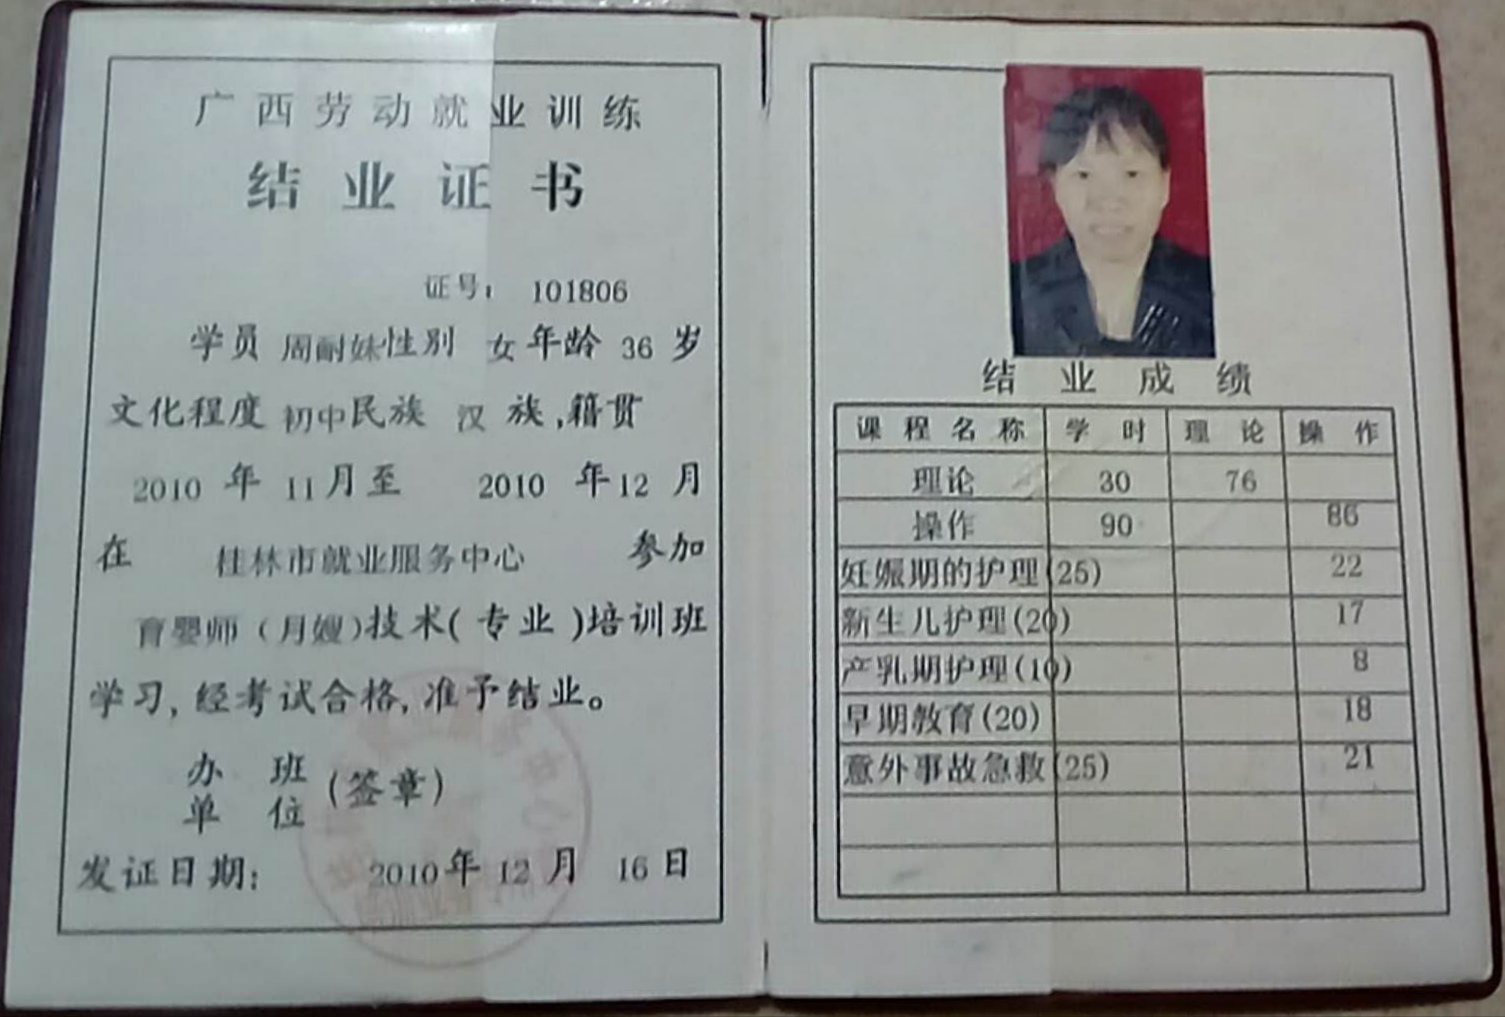 广西劳动就业训练
结业证书
证号: 101806
学员 周耐妹 性别 女 年龄 36 岁
文化程度 初中 民族 汉 族,籍贯
2010 年 11 月至 2010 年 12 月
在 桂林市就业服务中心 参加
育婴师（月嫂）技术(专业)培训班
学习,经考试合格,准予结业。
办班单位(签章)
发证日期: 2010 年 12 月 16 日
结业成绩
课程名称 学时 理论 操作
理论 30 76
操作 90 86
妊娠期的护理(25) 22
新生儿护理(20) 17
产乳期护理(10) 8
早期教育(20) 18
意外事故急救(25) 21